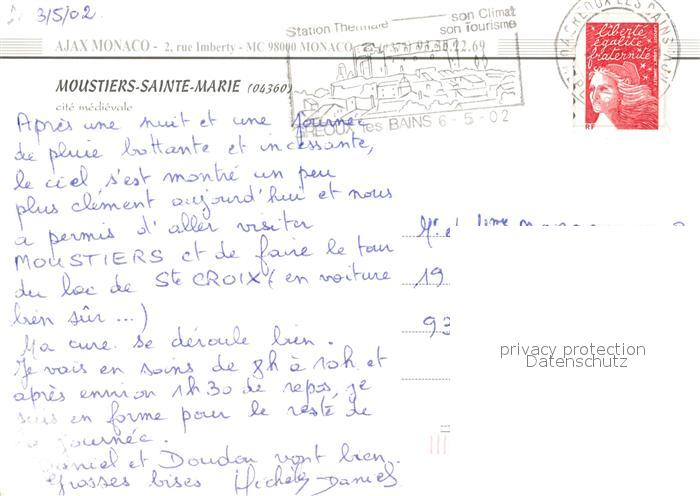 3/5/02
Station Thermale
son Climat
son Tourisme
AJAX MONACO - 2, rue Imberty - MC 98000 MONACO
MOUSTIERS-SAINTE-MARIE (04360)
cité médiévale
GREOUX les BAINS 6-5-02
liberté
égalité
fraternité
RF
Après une nuit et une journée
de pluie battante et incessante,
le ciel s'est montré un peu
plus clément aujourd'hui et nous
a permis d'aller visiter
MOUSTIERS et de faire le tour
du lac de Ste CROIX (en voiture
bien sûr ...)
Ma cure se déroule bien.
Je vais en soins de 8h à 10h et
après environ 1h30 de repos, je
suis en forme pour le reste de
la journée.
Daniel et Doudou vont bien.
Grosses bises Michèle Daniel
19
93
privacy protection
Datenschutz